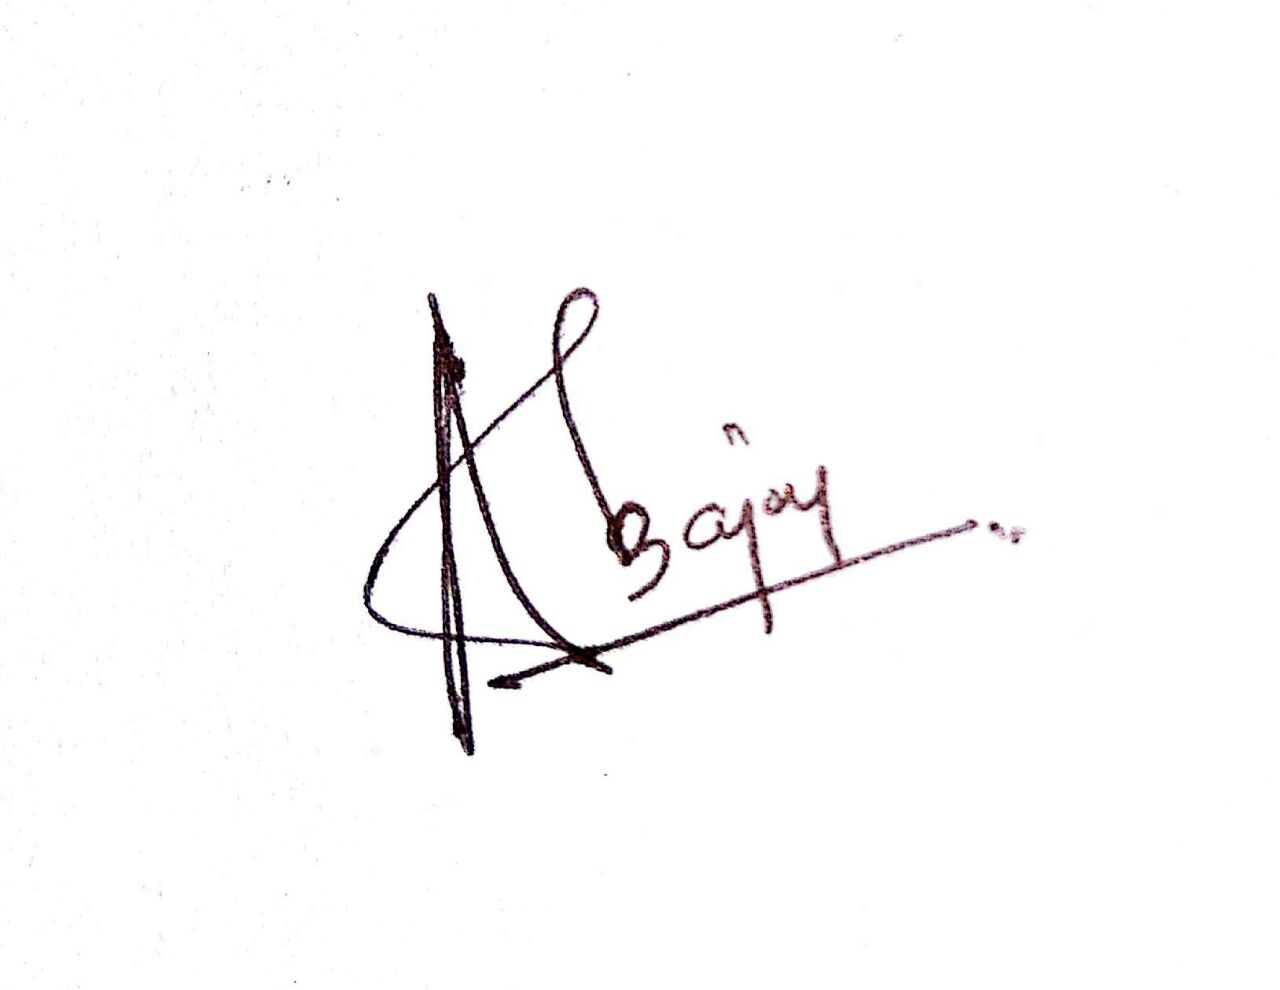 A Bajaj